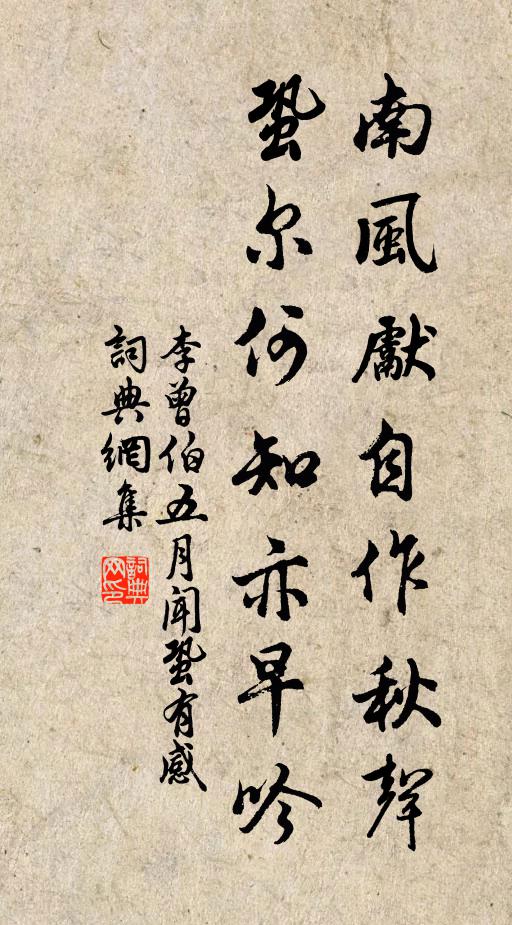 南風獻自作秋聲
蛩尔何知亦早吟
李曾伯五月闻蛩有感
詞典網集
詞典
网印